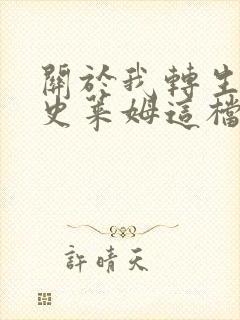 關於我轉生
史萊姆這檔
許晴天